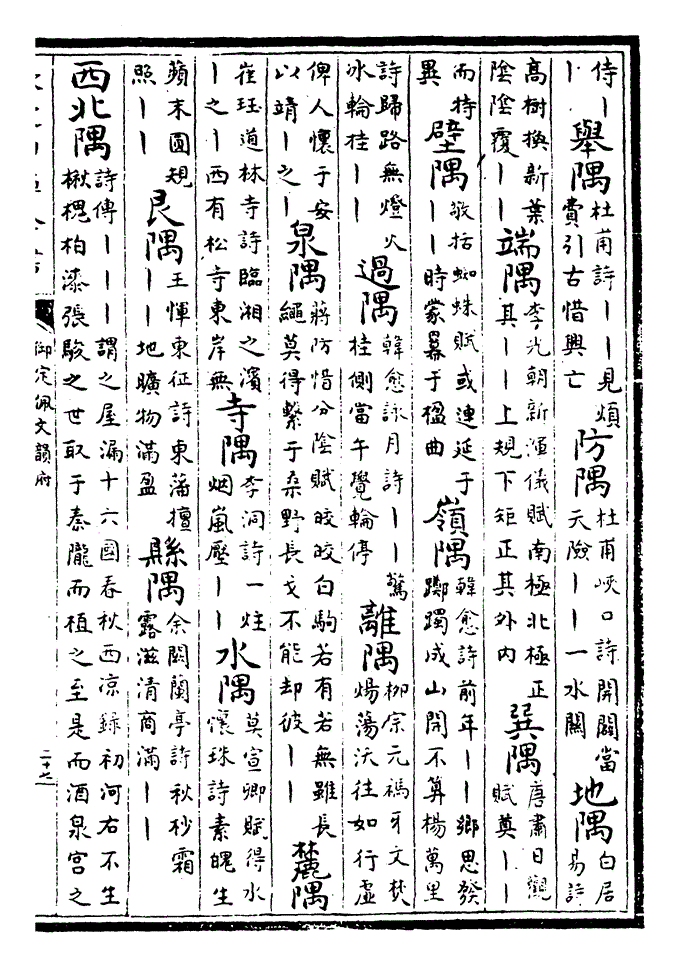 侍丨
丨
舉隅
杜甫詩丨丨見煩
費引古惜興亡
防隅
杜甫峽口詩開闢當
天險丨丨一水關
地隅
白居
易詩
高樹換新葉
陰陰覆丨丨
端隅
李光朝新渾儀賦南極北極正
其丨丨上規下矩正其外内
巽隅
唐肅日觀
賦奠丨丨
而特
異
壁隅
敬括蜘蛛賦或連延于
丨丨時蒙羃于楹曲
嶺隅
韓愈詩前年丨丨鄉思發
躑躅成山開不算楊萬里
詩歸路無燈火
冰輪桂丨丨
過隅
韓愈詠月詩丨丨驚
桂側當午覺輪停
離隅
柳宗元禡牙文焚
煬蕩沃往如行虛
俾人懷于安
以靖丨之丨
泉隅
蔣防惜分陰賦皎皎白駒若有若無雖長
繩莫得繫于桑野長戈不能却彼丨丨
麓隅
崔珏道林寺詩臨湘之濱
丨之丨西有松寺東岸無
寺隅
李洞詩一炷
烟嵐壓丨丨
水隅
莫宣卿賦得水
懷珠詩素魄生
蘋末圓規
照丨丨
艮隅
王惲東征詩東藩擅
丨丨地曠物滿盈
縣隅
余闕蘭亭詩秋杪霜
露滋清商滿丨丨
西北隅
詩傳丨丨丨謂之屋漏十六國春秋西涼錄初河右不生
楸槐柏漆張駿之世取于秦隴而植之至是而酒泉宮之
御定佩文韻府
二十七